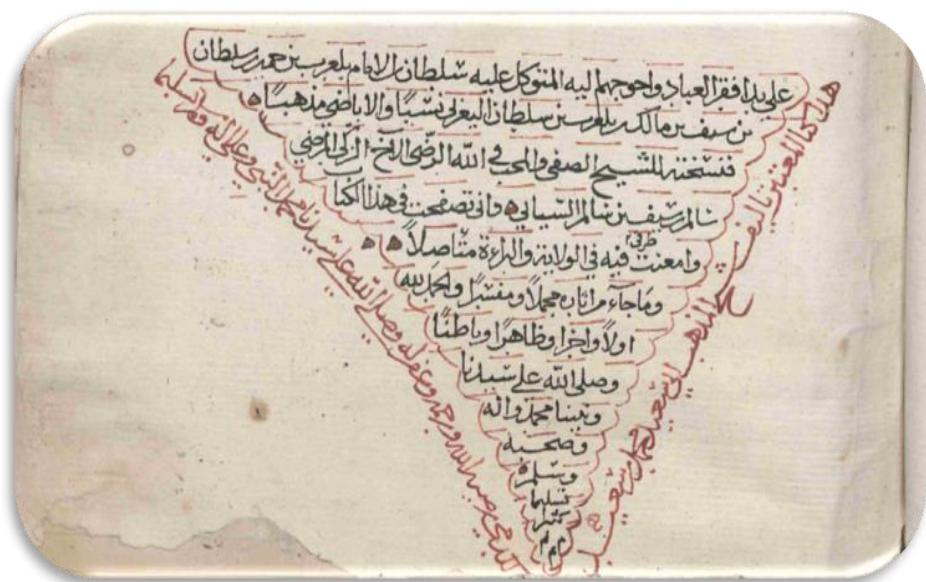 على يد افقر العباد واحوجهم ليه المتوكل عليه سلطان بن الامام بلعرب بن حمير بن سلطان
بن سيف بن مالك بن بلعرب بن سلطان اليعربي نسبًا والاباضي مذهبًا
فنسخته للشيخ الصفي والمحب في الله الرضي الاخ الزكي المرضي
سالم بن سيف بن سالم السيابي واني تصفحت في هذا الكتاب
وامعنت طرفي فيه في الولاية والبراءة متاصلاً
وما جآء من اثاره مجملاً ومفسرًا والحمد لله
اولاً واخرا وظاهرًا وباطنًا
وصلى الله على سيدنا
ونبينا محمد واله
وصحبه
وسلم
تسليما
كثيرا
م م م
هذا كتاب المعتبر تاليف الشيخ المذهب ابي سعيد محمد بن سعيد
الكدمي رضيه الله ورحمه وغفر له وصلى الله على سيدنا محمد النبي وعلى اله وسلم تسليما